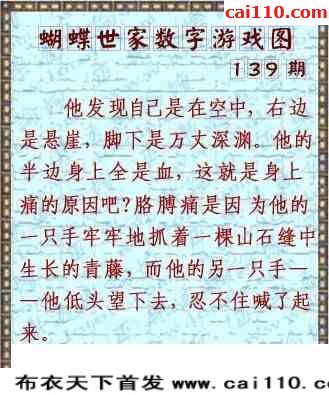 cai110.com
蝴蝶世家数字游戏图
139期
他发现自己是在空中，右边
是悬崖，脚下是万丈深渊。他的
半边身上全是血，这就是身上
痛的原因吧?胳膊痛是因为他的
一只手牢牢地抓着一棵山石缝中
生长的青藤，而他的另一只手—
—他低头望下去，忍不住喊了起
来。
布衣天下首发 www.cai110.co